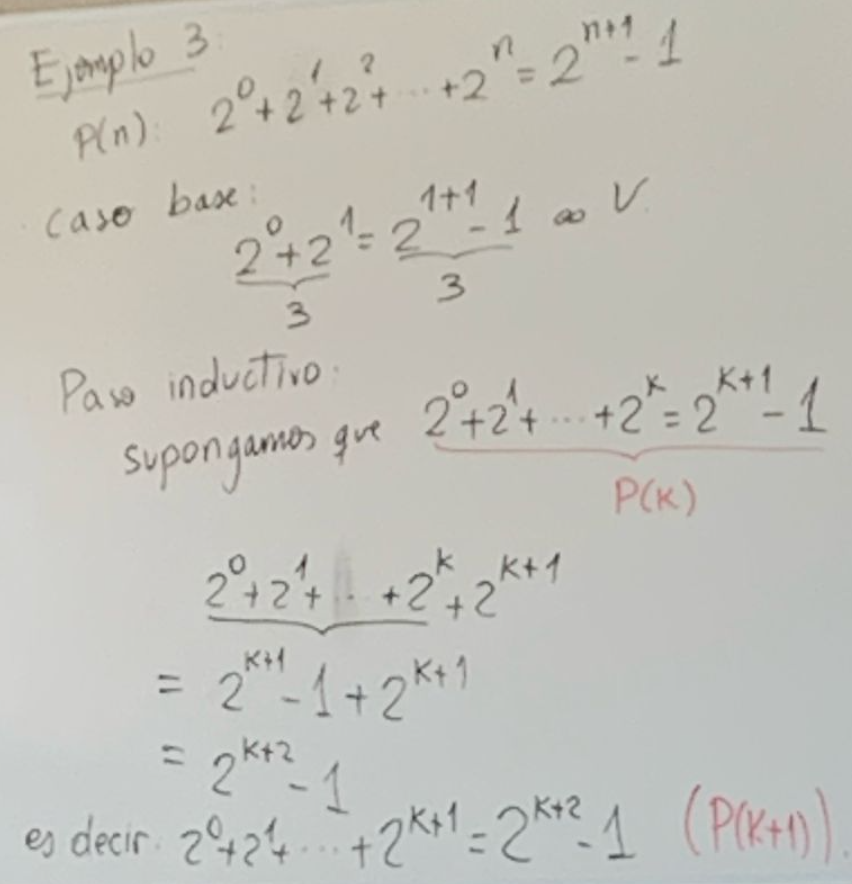 Ejemplo 3:
P(n): 2⁰+2¹+2²+...+2ⁿ=2ⁿ⁺¹-1
caso base:
2⁰+2¹=2¹⁺¹-1 ∞ V.
3 3
Paso inductivo:
supongamos que 2⁰+2¹+...+2ᵏ=2ᵏ⁺¹-1
P(k)
2⁰+2¹+...+2ᵏ+2ᵏ⁺¹
= 2ᵏ⁺¹-1+2ᵏ⁺¹
= 2ᵏ⁺²-1
es decir. 2⁰+2¹+...+2ᵏ⁺¹=2ᵏ⁺²-1 (P(k+1)).